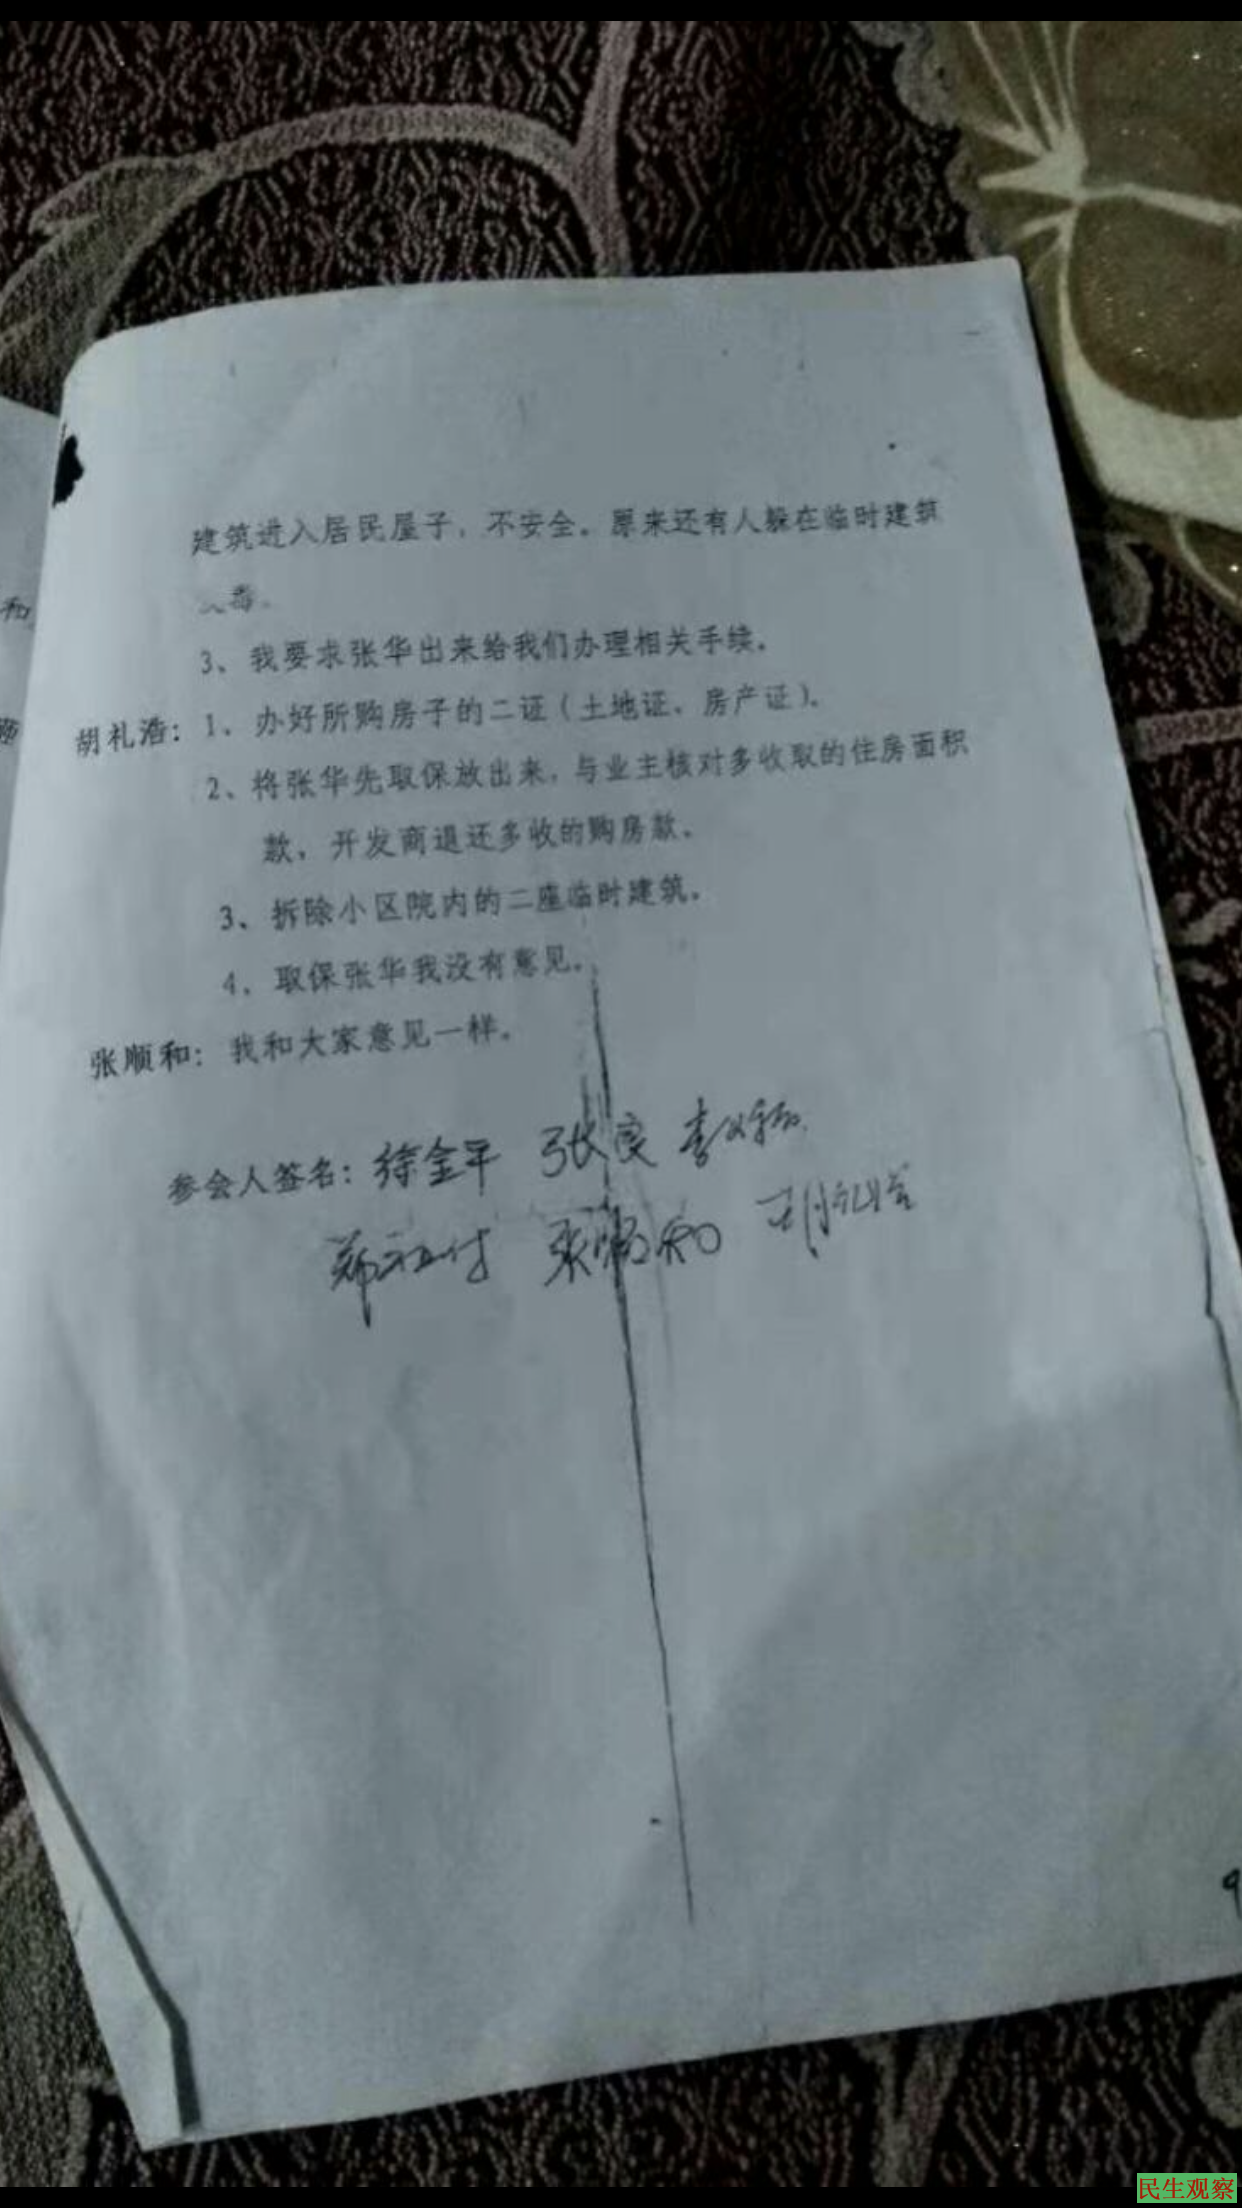 建筑进入居民屋子，不安全。原来还有人躲在临时建筑
毒。
3、我要求张华出来给我们办理相关手续。
胡礼浩：1、办好所购房子的二证（土地证、房产证）。
2、将张华先取保放出来，与业主核对多收取的住房面积
款，开发商退还多收的购房款。
3、拆除小区院内的二座临时建筑。
4、取保张华我没有意见。
张顺和：我和大家意见一样。
参会人签名：徐金平 张良
张顺和 胡礼浩
和
9
民生观察